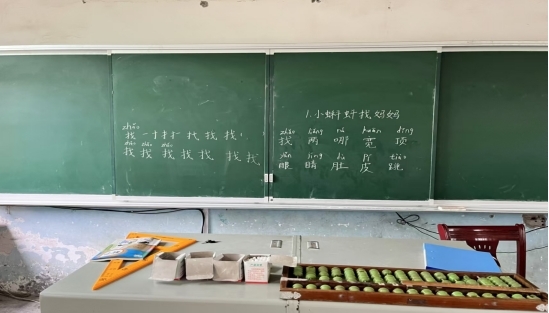 zhǎo
找 一 十 扌 扌 找 找 找
zhǎo zhǎo zhǎo
找 找 找 找 找 找 找
1. 小蝌蚪找妈妈
zhǎo liǎng nǎ kuān dǐng
找 两 哪 宽 顶
yǎn jīng dù pí tiào
眼 睛 肚 皮 跳